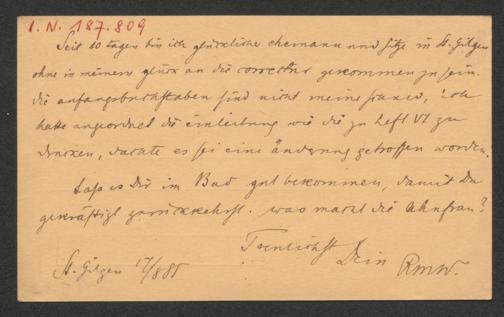 I. N. 187.809
Seit 10 tagen bin ich glücklicher ehemann und sitze in St. Gilgen
ohne in meinem glück an die correctur gekommen zu sein.
die anfangsbuchstaben sind nicht meine ich
hatte angeordnet die einleitung wie die zu heft VI zu
drucken, dachte es sei eine änderung getroffen worden.
Laß es Dir im Bad gut bekommen, damit Du
gekräftigt zurückkehrst. was macht die Ahnfrau?
Treulichst Dein RMW.
St. Gilgen 17/8 85